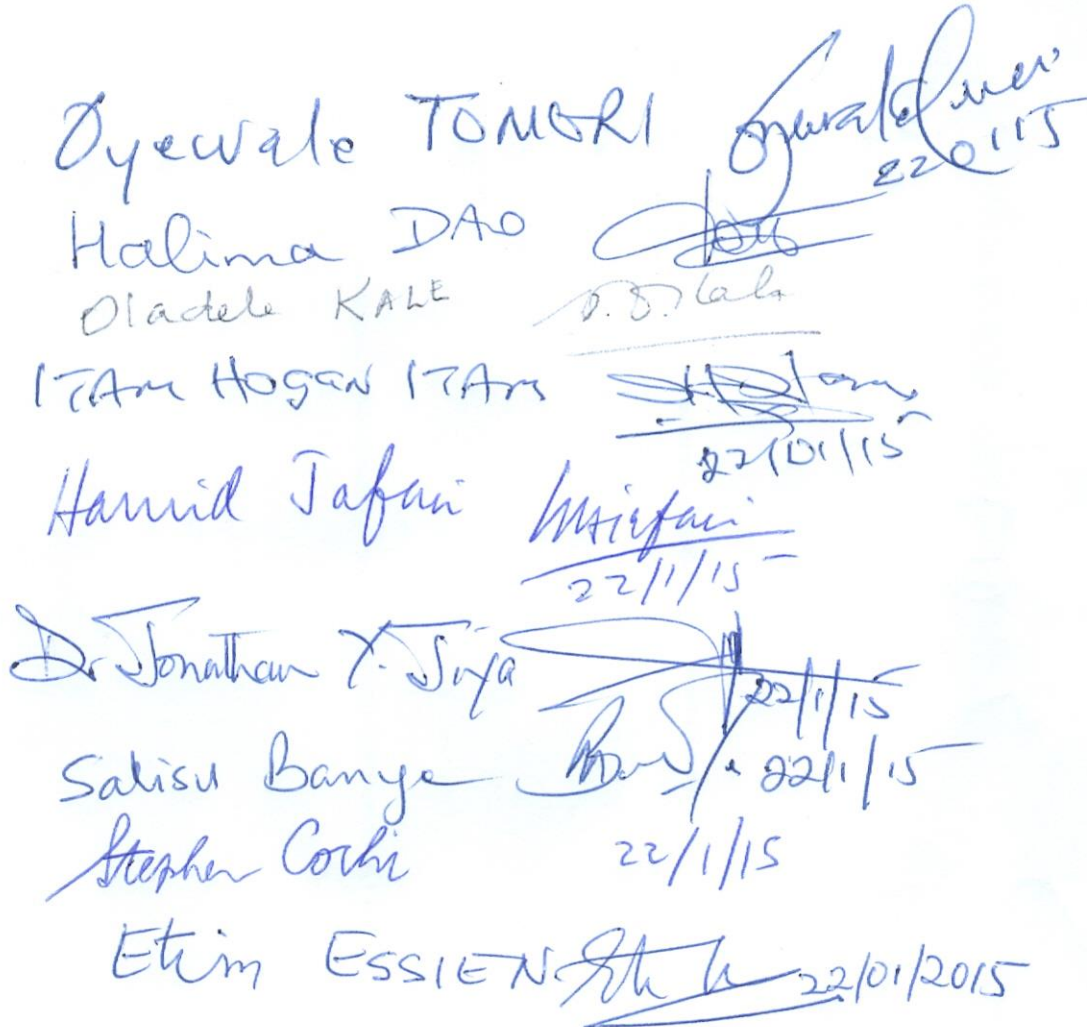 Oyewale TOMORI
220115
Halima DAO
Oladele KALE O.O. Kale
ITAM HOGAN ITAM
22/01/15
Hamid Jafari
22/1/15
Dr Jonathan Y. Jiya 22/1/15
Salisu Banye 22/1/15
Stephen Cochi 22/1/15
Etim ESSIEN 22/01/2015